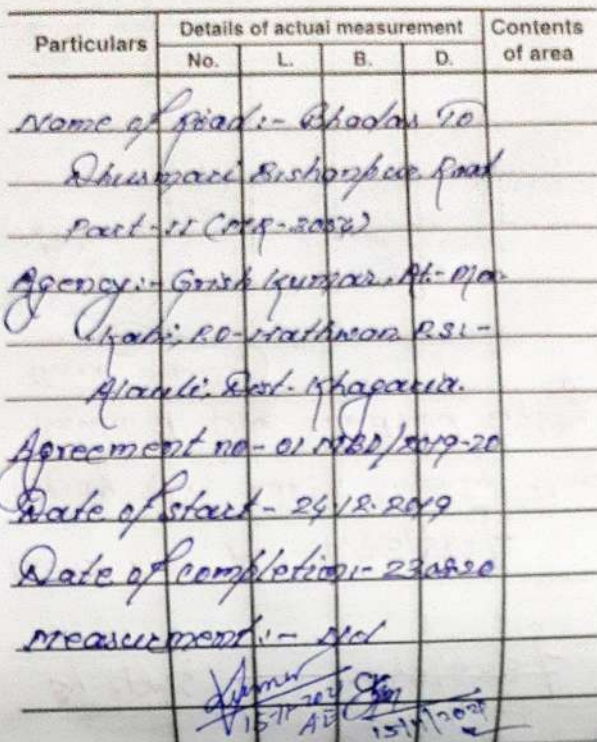 Particulars Details of actual measurement Contents of area
No. L. B. D.
Name of Road:- Bhadas To
Dhusmari Bishanpur Road
Part-II
Agency:- Grish Kumar, At-
P.O- Hathwan P.S:-
Alauli, Dist- Khagaria.
Agreement no- 01 MBD/2019-20
Date of start- 24.12.2019
Date of completion:-
measurment:-
Kumar